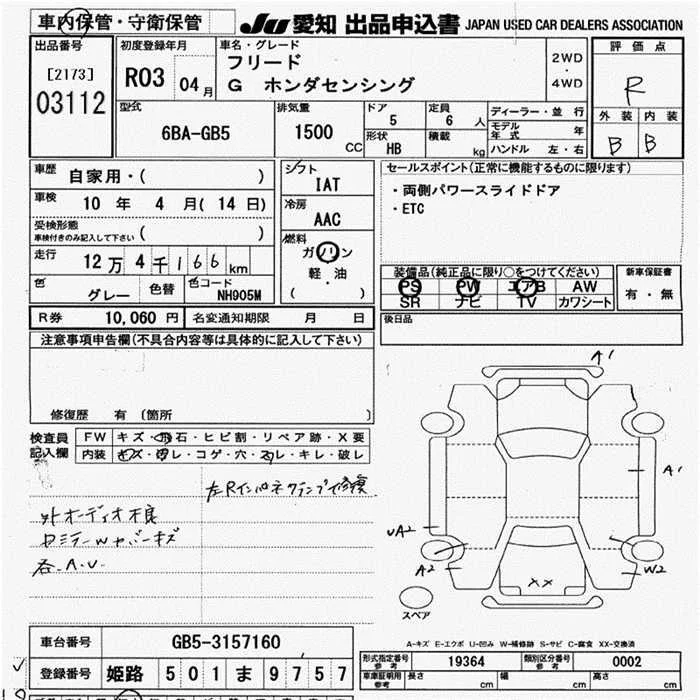 車内保管・守衛保管
JU 愛知 出品申込書 JAPAN USED CAR DEALERS ASSOCIATION
出品番号
[2173]
03112
初度登録年月
R03 04月
車名・グレード
フリード
G ホンダセンシング
2WD
・
4WD
評価点
R
外装 内装
B B
型式
6BA-GB5
排気量
1500 CC
ドア
5
定員
6 人
形状
HB
積載
kg
ディーラー・並行
モデル年式 年
ハンドル 左・右
車歴 自家用・( )
車検 10 年 4 月( 14 日)
受検形態
車検付きのみ記入して下さい ( )
走行 12 万 4 千 166 km
色 グレー 色替 色コード NH905M
シフト
IAT
冷房
AAC
燃料
ガソリン
軽・油
( )
セールスポイント(正常に機能するものに限ります)
・両側パワースライドドア
・ETC
装備品(純正品に限り○をつけてください)
PS PW エアB AW
SR ナビ TV カワシート
新車保証書
有・無
R券 10,060 円 名変通知期限 月 日
後日品
注意事項申告欄(不具合内容等は具体的に記入して下さい)
修復歴 有 (箇所 )
検査員記入欄
FW キズ・飛石・ヒビ割・リペア跡・X要
内装 キズ・汚レ・コゲ・穴・スレ・キレ・破レ
左Rインパネクランプで修復
外オーディオ不良
各-A.U-
A1
A1
UA2
A2
W2
XX
スペア
A-キズ E-エクボ U-凹み W-補修跡 S-サビ C-腐食 XX-交換済
車台番号 GB5-3157160
登録番号 姫路 501 ま 9757
形式指定番号 参考 19364 類別区分番号 参考 0002
車庫証明用 参考 長さ cm 幅 cm 高さ cm